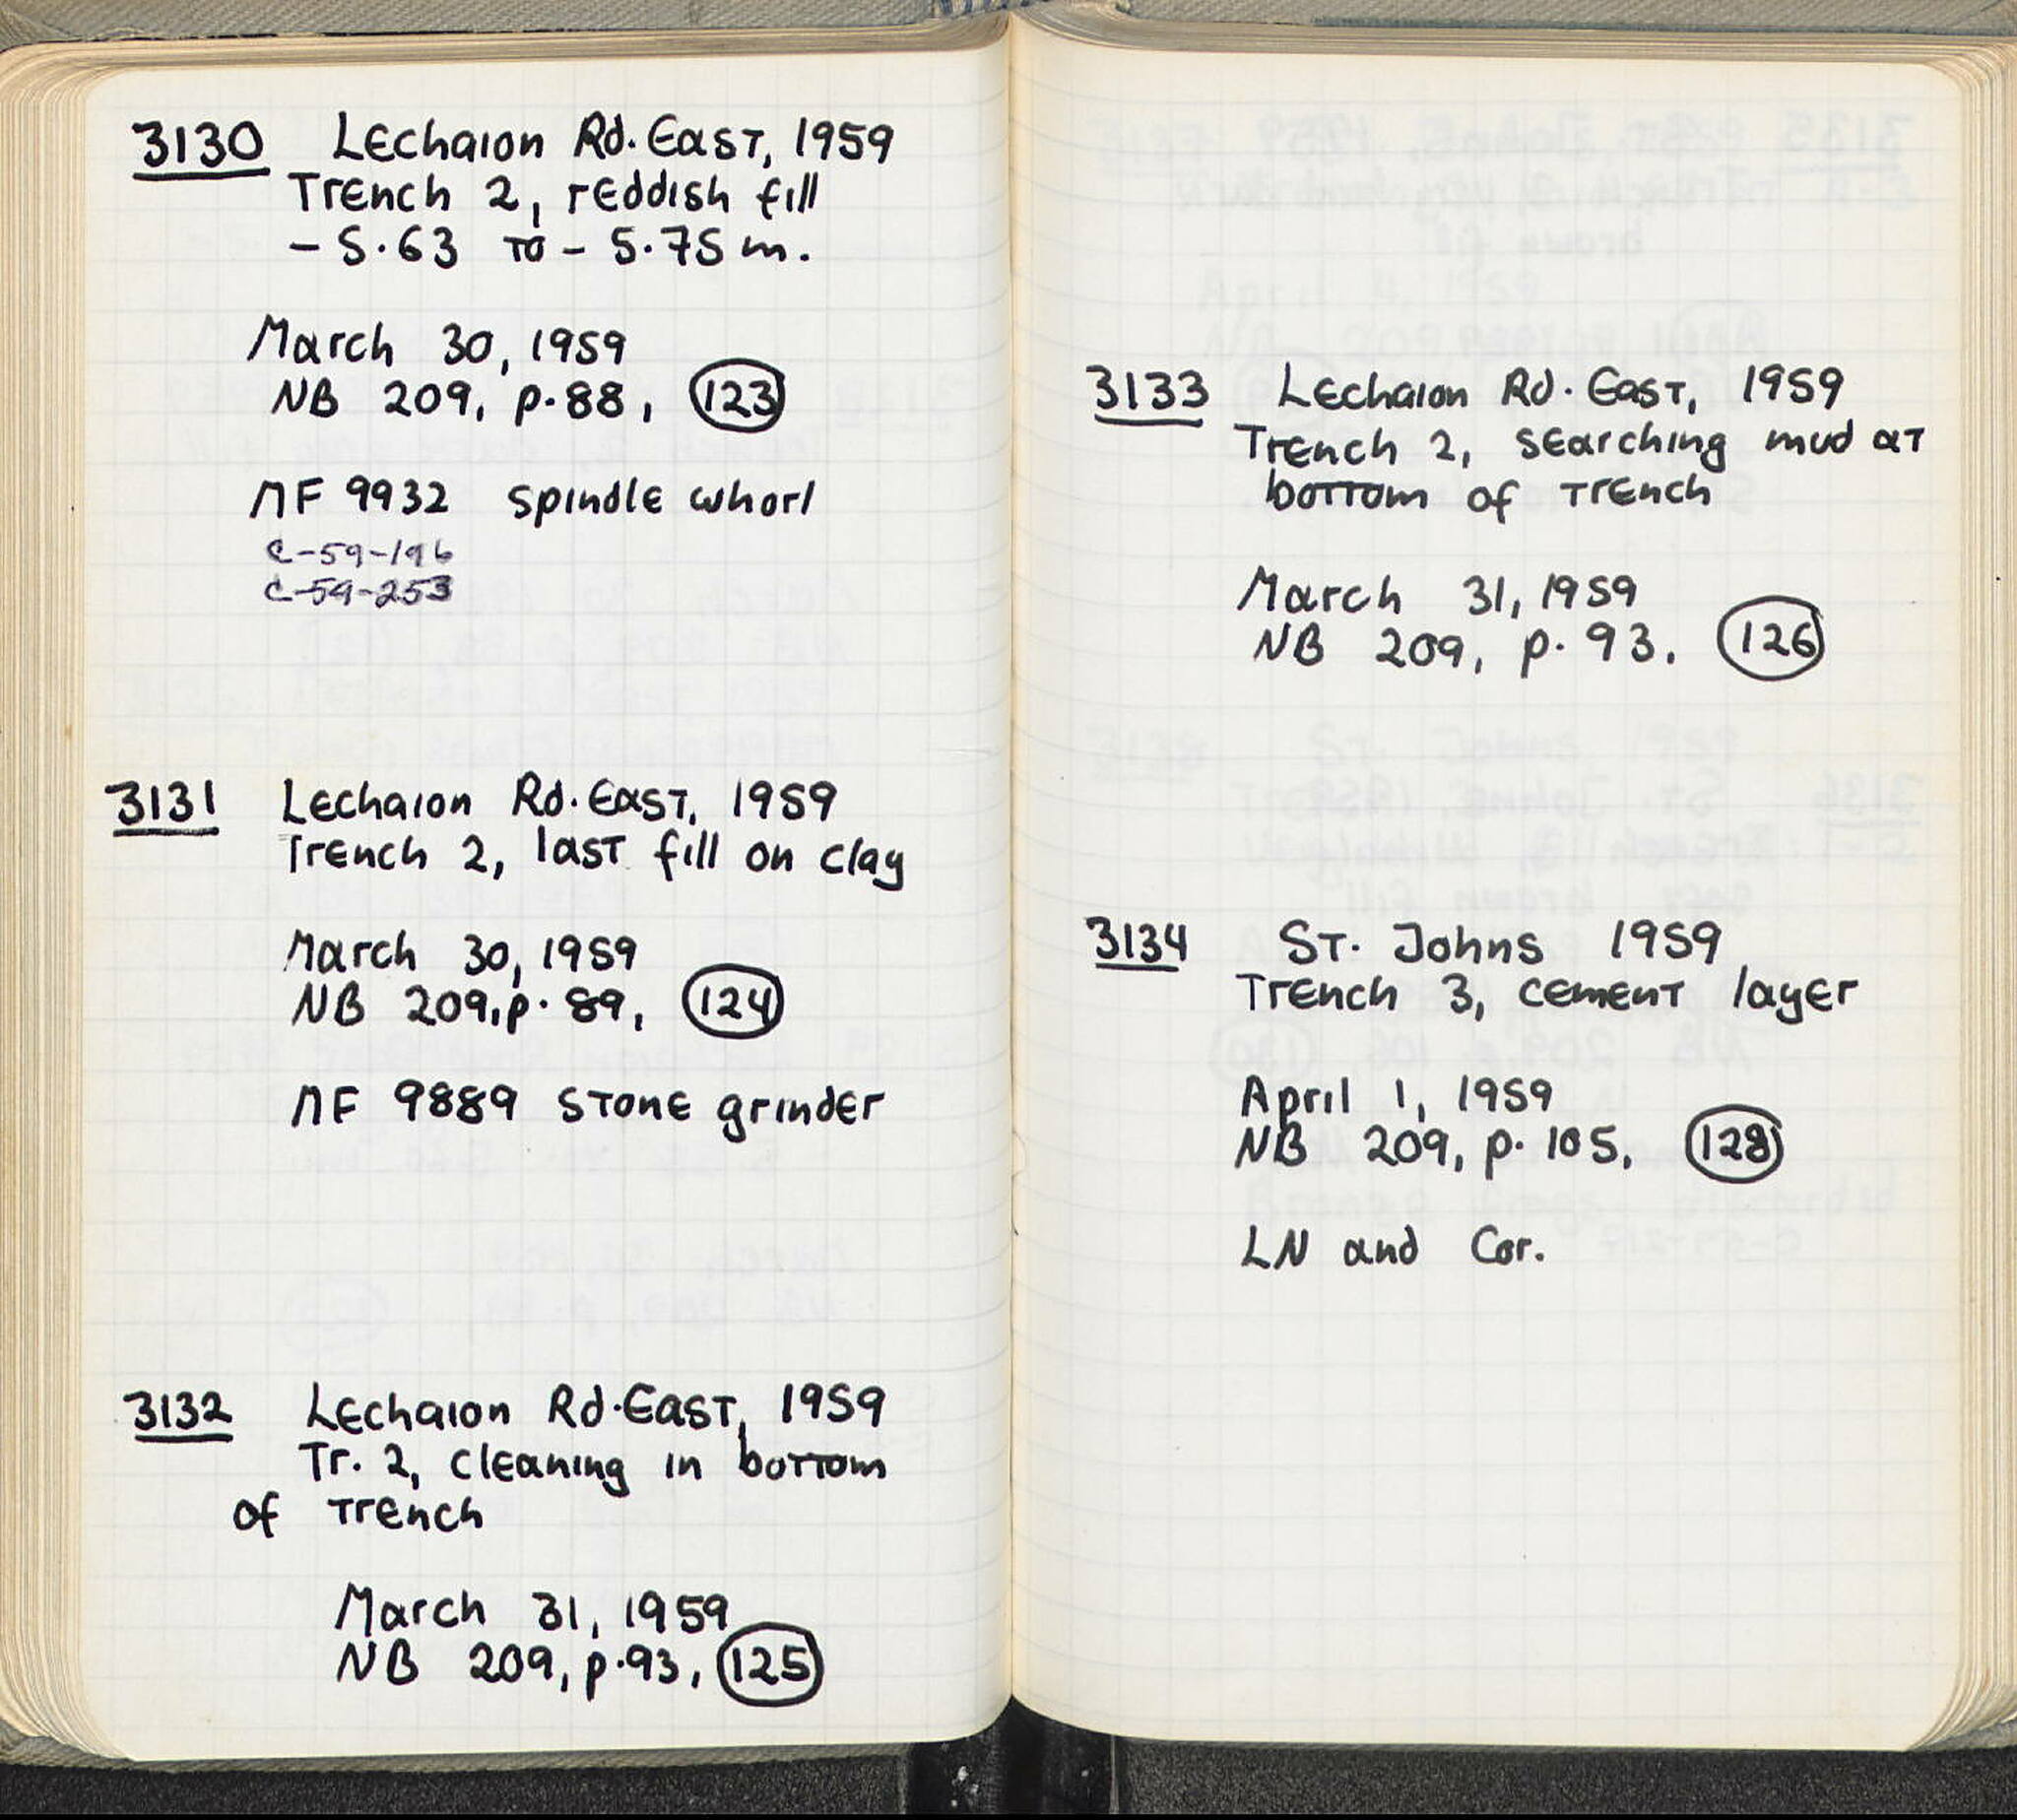 3130 Lechaion Rd. East, 1959
Trench 2, reddish fill
- 5.63 to - 5.75 m.
March 30, 1959
NB 209, p. 88, 123
MF 9932 spindle whorl
C-59-196
C-59-253
3131 Lechaion Rd. East, 1959
Trench 2, last fill on clay
March 30, 1959
NB 209, p. 89, 124
MF 9889 stone grinder
3132 Lechaion Rd. East, 1959
Tr. 2, cleaning in bottom
of trench
March 31, 1959
NB 209, p. 93, 125
3133 Lechaion Rd. East, 1959
Trench 2, searching mud at
bottom of trench
March 31, 1959
NB 209, p. 93. 126
3134 St. Johns 1959
Trench 3, cement layer
April 1, 1959
NB 209, p. 105. 128
LN and Cor.